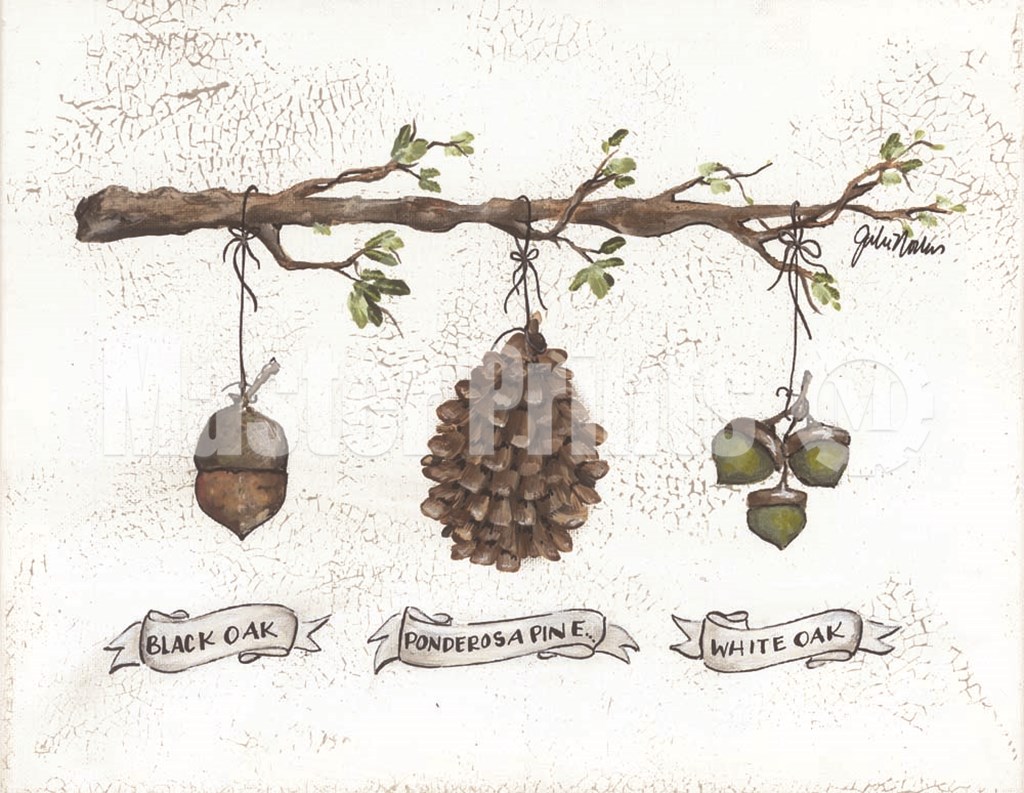 Julie Norkus
MasterPrints
BLACK OAK
PONDEROSA PINE...
WHITE OAK